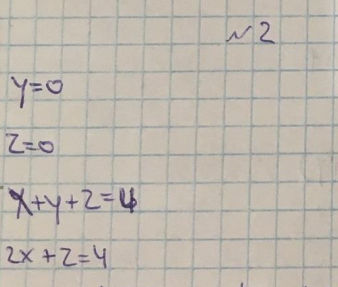 №2
y=0
z=0
x+y+z=4
2x+z=4